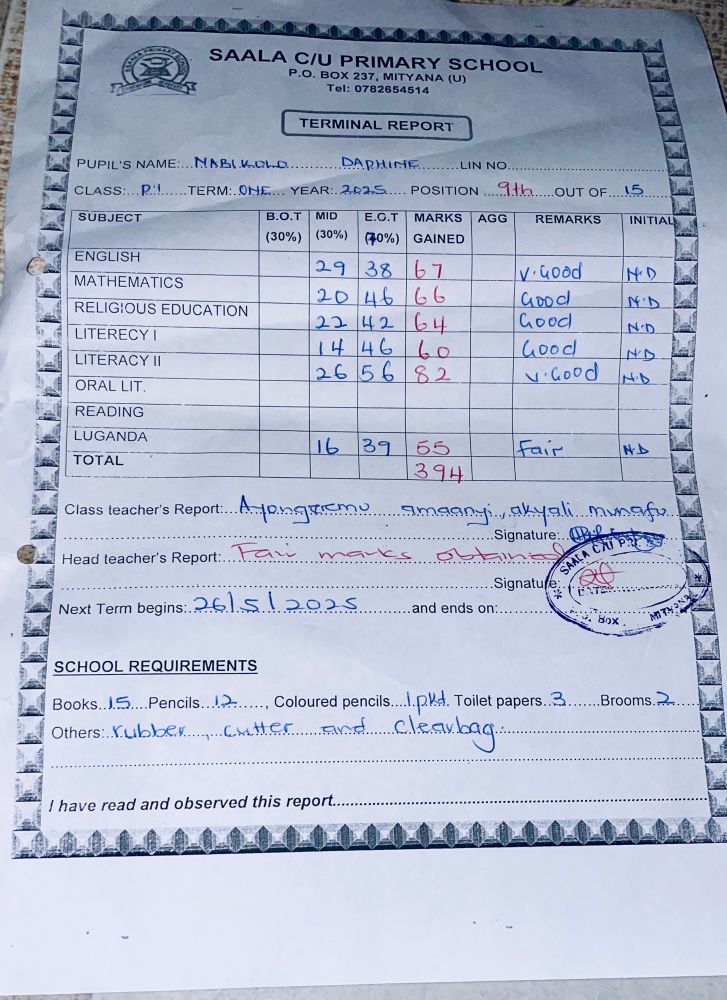 SAALA C/U PRIMARY SCHOOL
P.O. BOX 237, MITYANA (U)
Tel: 0782654514
TERMINAL REPORT
PUPIL'S NAME:...NABIKOLO............DAPHINE..........LIN NO.
CLASS:...P.1.....TERM:..ONE... YEAR:..2025.... POSITION ....9th....OUT OF...15
SUBJECT B.O.T (30%) MID (30%) E.O.T (70%) MARKS GAINED AGG REMARKS INITIAL
ENGLISH 29 38 67 V.Good N.D
MATHEMATICS 20 46 66 Good N.D
RELIGIOUS EDUCATION 22 42 64 Good N.D
LITERECY I 14 46 60 Good N.D
LITERACY II 26 56 82 V.Good N.D
ORAL LIT.
READING
LUGANDA 16 39 55 Fair N.D
TOTAL 394
Class teacher's Report:...Ayongeremu amaanyi, akyali munafu.
Signature:
Head teacher's Report: Fair marks obtained
Signature:
SAALA C/U P
DATE
BOX MITYANA
Next Term begins: 26/5/2025..........and ends on:
SCHOOL REQUIREMENTS
Books..15....Pencils...12......, Coloured pencils...1pkt. Toilet papers..3.......Brooms.2
Others:..rubber..., cutter and clearbag.
I have read and observed this report